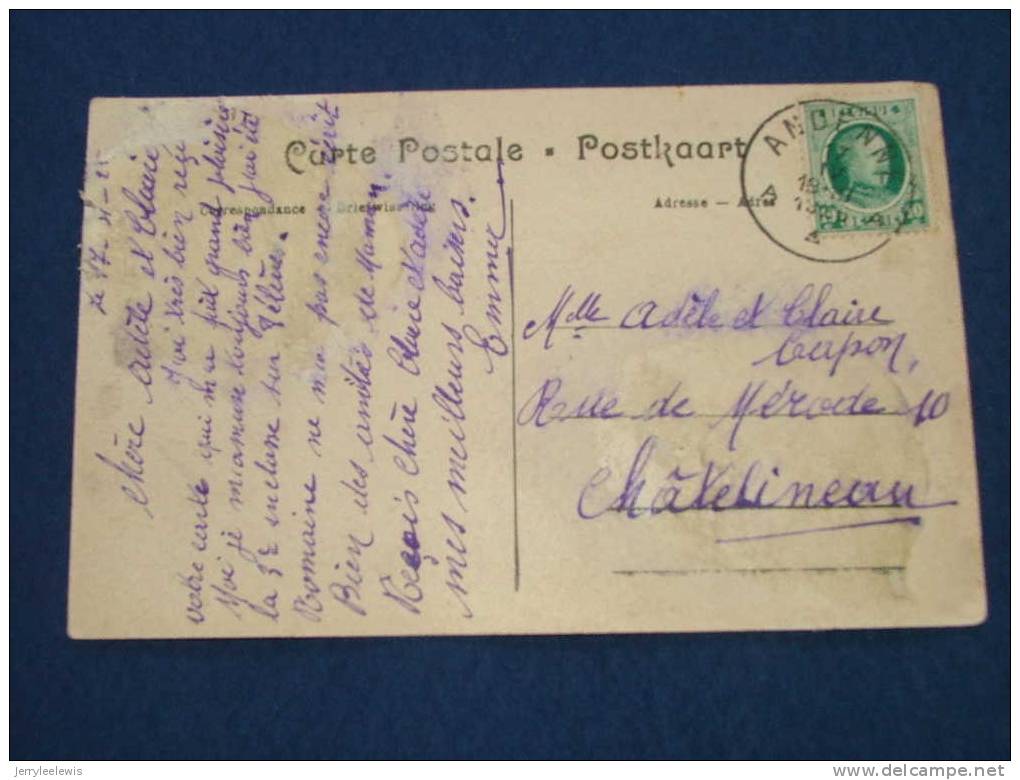 Carte Postale - Postkaart
Correspondance - Briefwisseling
Adresse — Adres
ANDENNE
A
Le 17 - 4 - 25
Chère Adèle et Claire
J'ai très bien reçu
votre carte qui m'a fait grand plaisir
Moi je m'amuse toujours bien j'ai été
la 3e
Romaine ne m'a pas encore écrit
Bien des amitiés de Maman.
Reçois Chère Claire et Adèle
mes meilleurs baisers.
Emma
Mlle Adèle et Claire
Capon,
Rue de Mérode 10
Châtelineau
jerryleelewis
www.delcampe.net